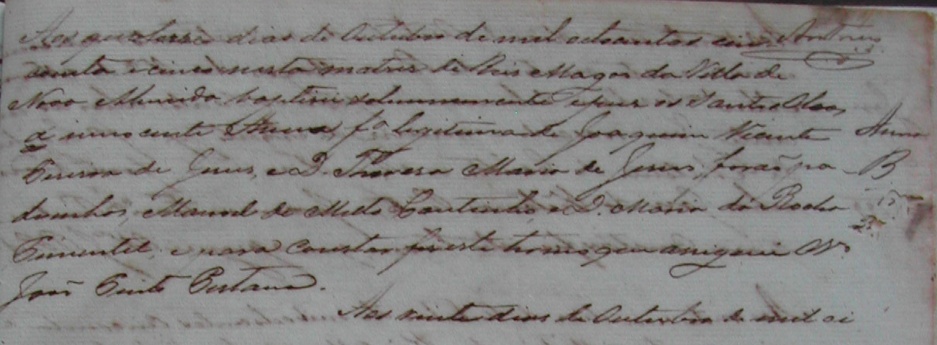 Aos quatorze dias de Outubro de mil oitocentos cin
coenta e cinco nesta matriz de Reis Magos da Villa de
Nova Almeida baptizei solemnemente e puz os Santos Oleos
a innocente Anna fª legitima de Joaquim Vicente
Pereira de Jesus, e D. Thereza Maria de Jesus, forão pa
drinhos, Manoel de Mello Coutinho, e D. Maria da Rocha
Pimentel, e para constar fiz este termo que assignei. Vº
João Pinto Pestana.
Anna
B
15
25
Aos vinte dias de Outubro de mil oi